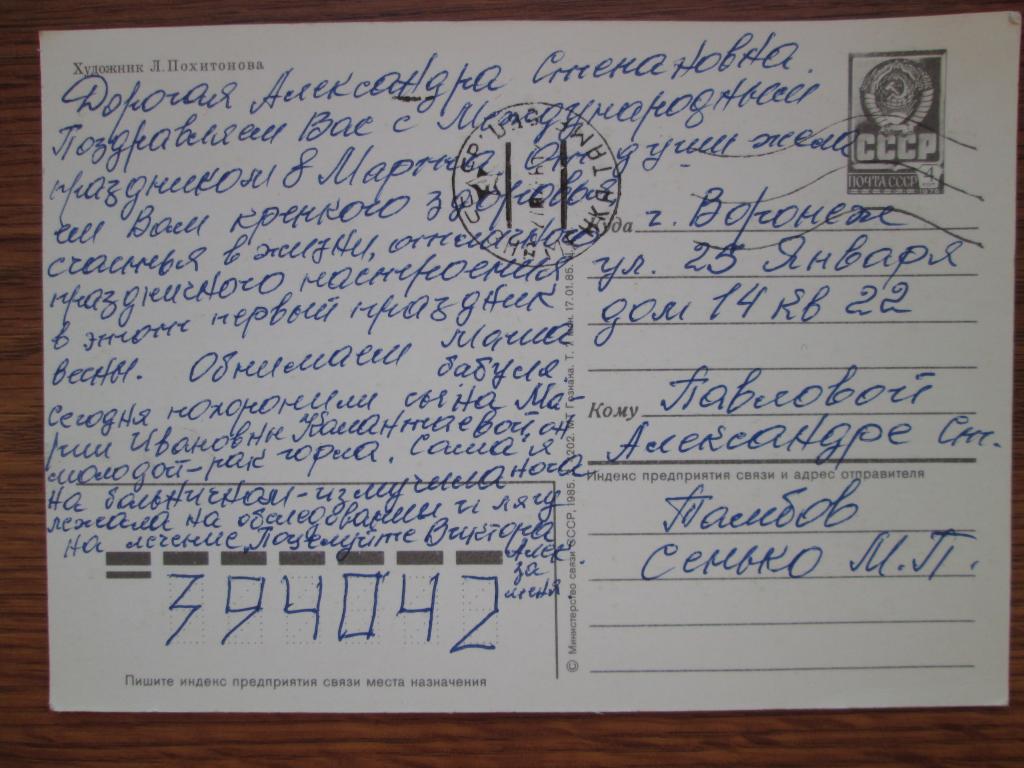 Художник Л. Похитонова
Дорогая Александра Степановна.
Поздравляем Вас с Международным
праздником 8 Марта. От души жела
ем Вам крепкого здоровья
счастья в жизни, отличного
праздничного настроения
в этот первый праздник
весны. Обнимаем Маша
бабуля.
Сегодня похоронили сына Ма-
рии Ивановны Калантаевой, он
молодой-рак горла. Сама я
на больничном-измучила нога-
лежала на обследовании и лягу
на лечение. Поцелуйте Виктора
Алек.
за
меня.
394042
Пишите индекс предприятия связи места назначения
© Министерство связи СССР, 1985. 202. МТ Гознака. 17.01.85.
СССР
ПОЧТА СССР
4
Куда г. Воронеж
ул. 25 Января
дом 14 кв 22
Кому Павловой
Александре Ст.
Индекс предприятия связи и адрес отправителя
Тамбов
Сенько М.П.